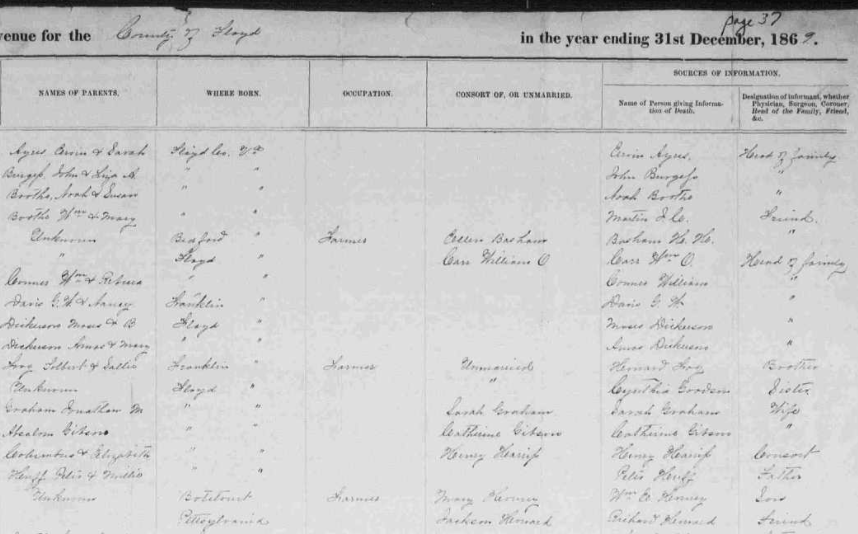 page 37
venue for the County of Floyd in the year ending 31st December, 1869.
SOURCES OF INFORMATION.
NAMES OF PARENTS. WHERE BORN. OCCUPATION. CONSORT OF, OR UNMARRIED. Name of Person giving Information of Death. Designation of informant, whether Physician, Surgeon, Coroner, Head of the Family, Friend, &c.
Ayres, & Sarah Floyd Co. Va Ayres, Head of family
Burgess, John & A " " John Burgess "
Booths, Noah & Susan " " Noah Booths "
Booths Wm & Mary " " Martin Friend.
Unknown Bedford " Farmer Basham Basham H. H. "
" Floyd " Carr William O Carr Wm O. Head of family
Conner Wm & Rebeca " " Conner William "
Davis G. W & Nancy Franklin " Davis G. W "
Dickerson Moses & B Floyd " Moses Dickerson "
Dickerson Amos & Mary " " Amos Dickerson "
& Sallie Franklin " Farmer Unmarried Brother
Unknown Floyd " " Cynthia Goodson Sister
Graham Jonathan M " " Sarah Graham Sarah Graham Wife
Absalom Gibson " " Catharine Gibson Catharine Gibson "
Columbus & Elizabeth " " Henry Henry Consort
Huff Peter & " " Peter Huff Father
Unknown Botetourt " Farmer Mary Wm Son
Pittsylvania Jackson Howard Richard Howard Friend